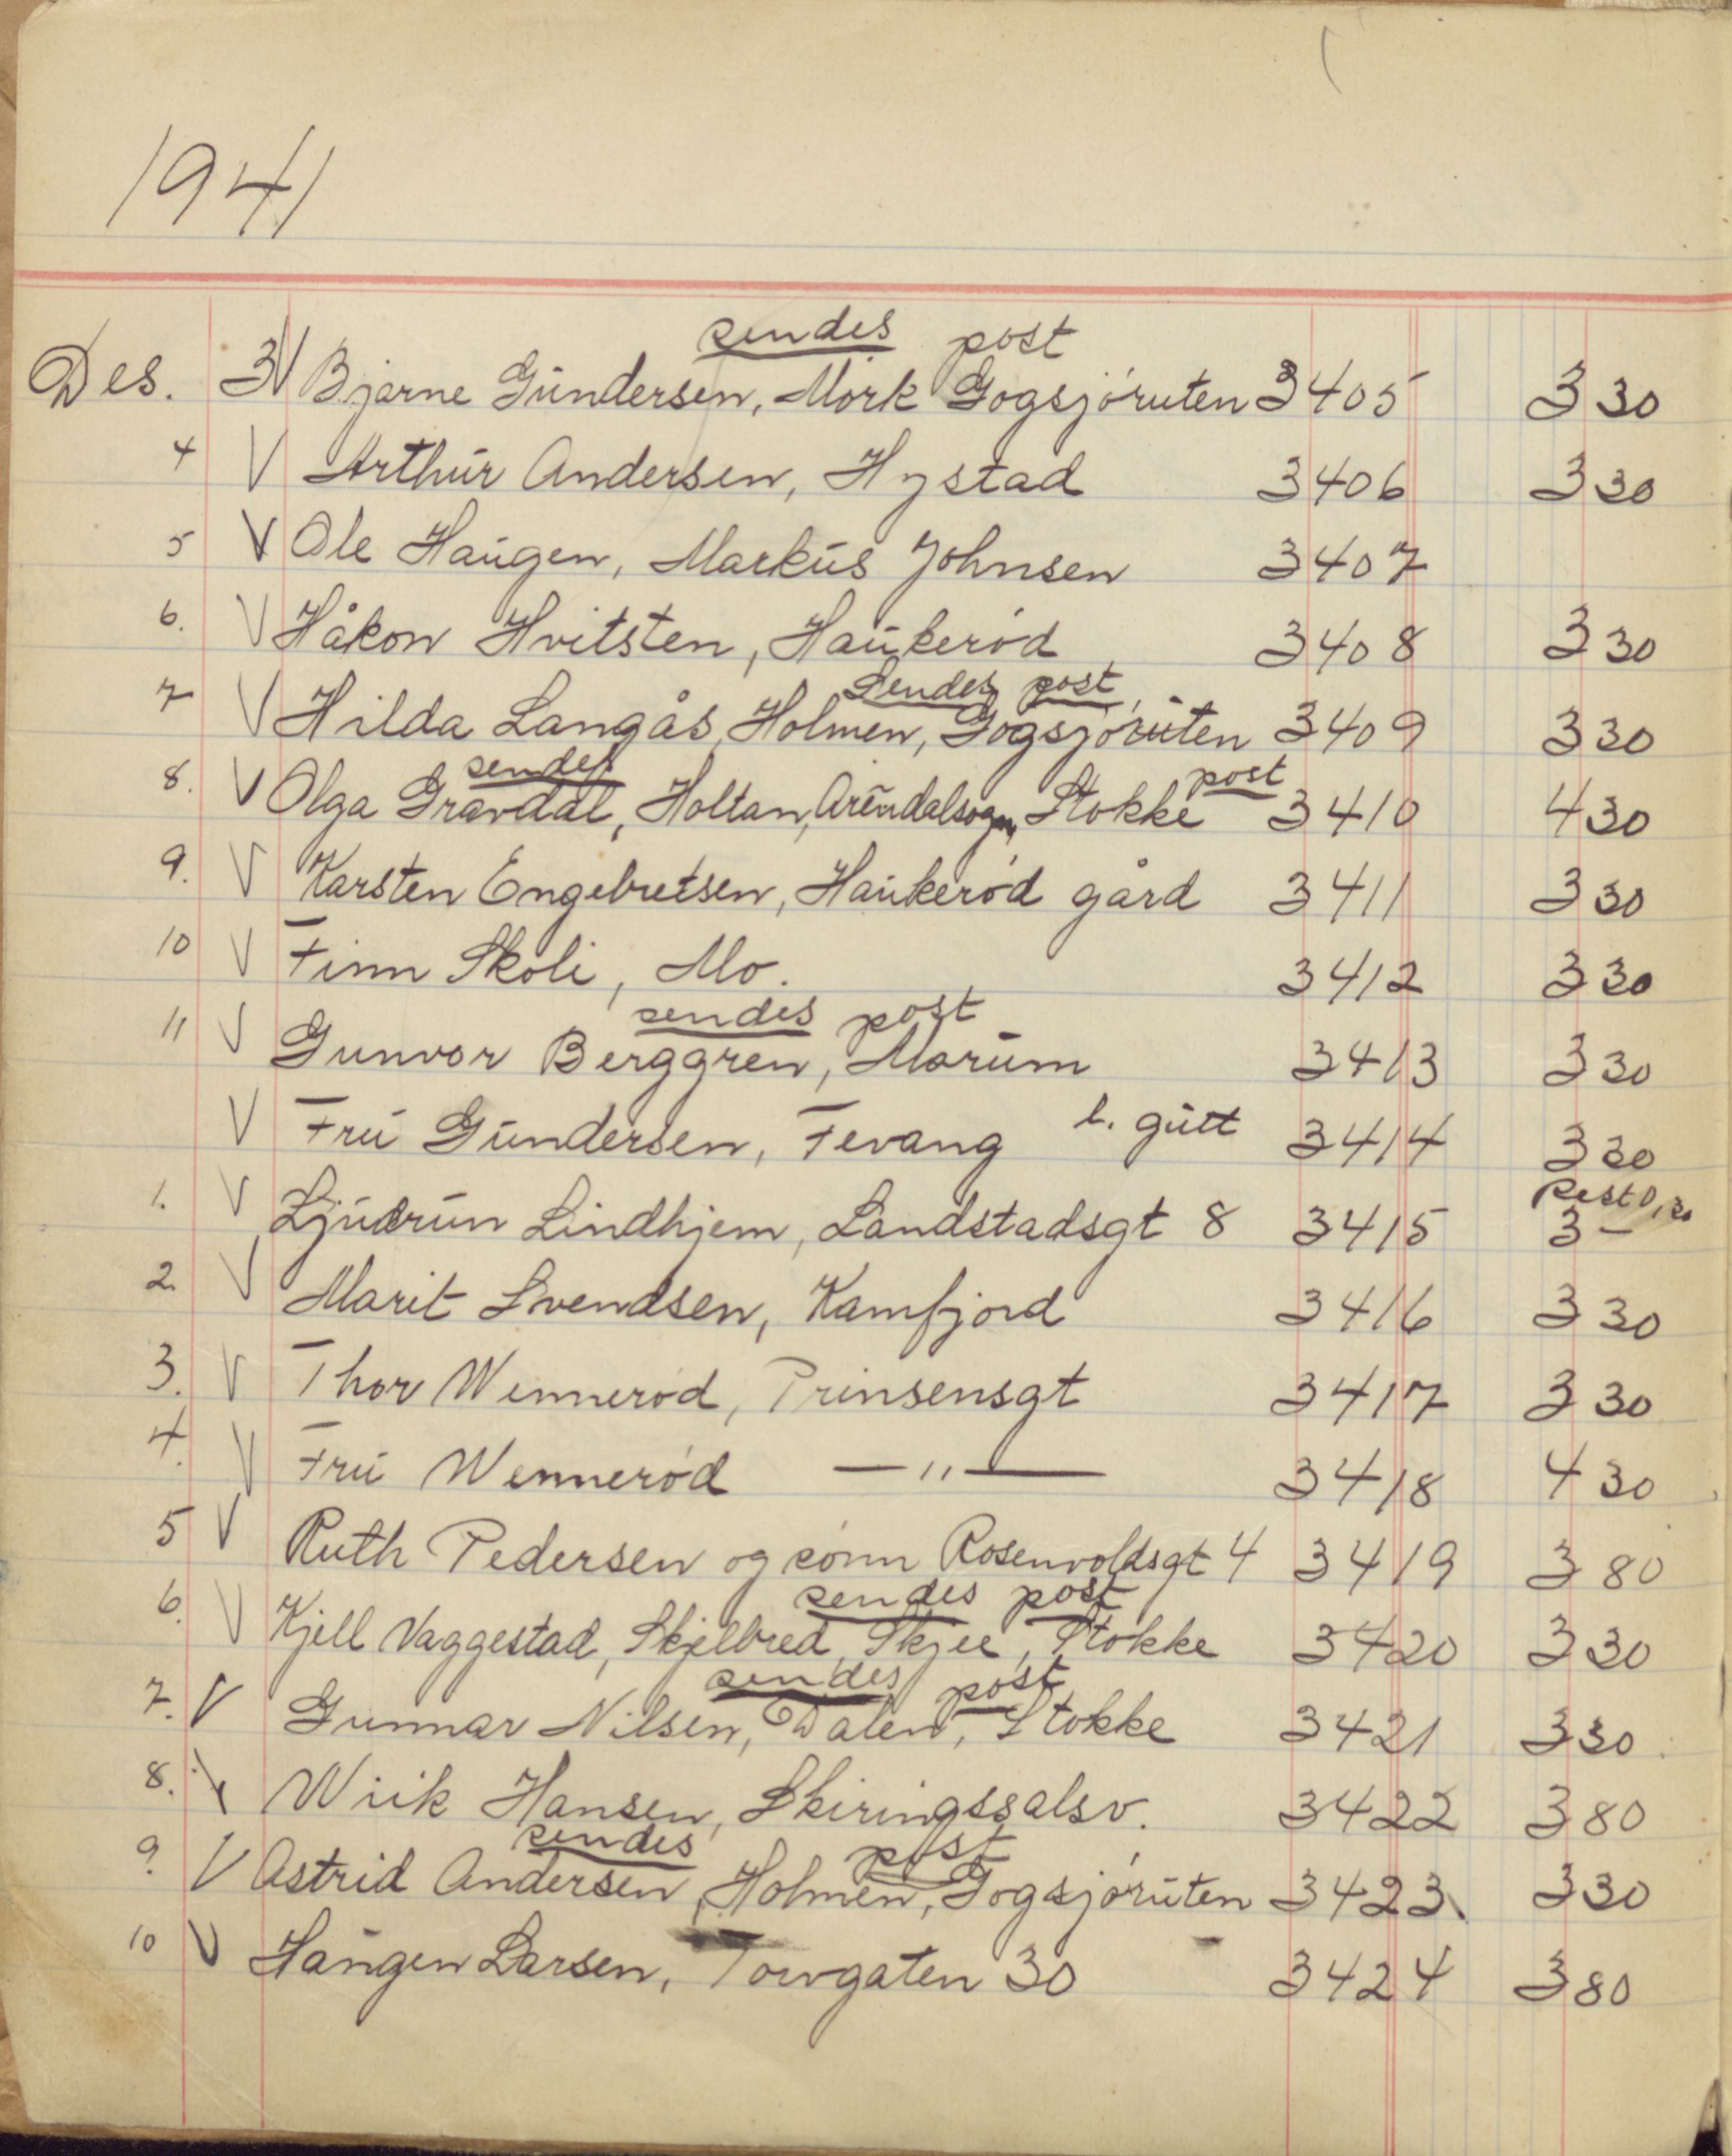 1941
sendes post
Des. 3 V Bjarne Gundersen, Mørk Gogsjøruten 3405 3 30
4 V Arthur Andersen, Hystad 3406 3 30
5 V Ole Haugen, Markus Johnsen 3407
6. V Håkon Hvitsten, Haukerød 3408 3 30
Sendes post
7 V Hilda Langås, Holmen, Gogsjøruten 3409 3 30
sendes post
8. V Olga Gravdal, Holtan, Arendalsogn, Stokke 3410 4 30
9. V Karsten Engebretsen, Haukerød gård 3411 3 30
10 V Finn Skoli, Mo. 3412 3 30
sendes post
11 V Gunvor Berggren, Marum 3413 3 30
V Fru Gundersen, Fevang l. gutt 3414 3 30
Rest 0,30
1. V Ljudrun Lindhjem, Landstadsgt 8 3415 3 –
2 V Marit Svendsen, Kamfjord 3416 3 30
3. V Thor Wennerød, Prinsensgt 3417 3 30
4. V Fru Wennerød —"— 3418 4 30
5 V Ruth Pedersen og sønn Rosenvoldsgt 4 3419 3 80
sendes post
6. V Kjell Vaggestad, Skjelbred, Skjee, Stokke 3420 3 30
sendes post
7. V Gunnar Nilsen, Dalen, Stokke 3421 3 30
8. Wiik Hansen, Skiringssalsv. 3422 3 80
sendes post
9. V Astrid Andersen, Holmen, Gogsjøruten 3423 3 30
10 V Haugen Larsen, Torvgaten 30 3424 3 80